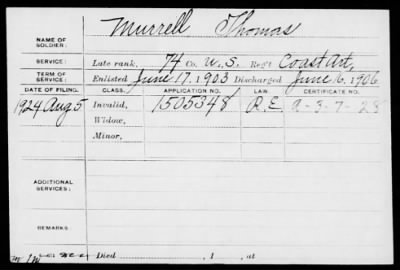 NAME OF SOLDIER: Murrell Thomas
SERVICE: Late rank, 74 Co. U.S. Reg't Coast Art,
TERM OF SERVICE: Enlisted June 17, 1903 Discharged June 16, 1906
DATE OF FILING. CLASS. APPLICATION NO. LAW. CERTIFICATE NO.
1924 Aug 5 Invalid, 1505348 R.E. a-3-7-28
Widow,
Minor,
ADDITIONAL SERVICES:
REMARKS:
Died , 1 , at